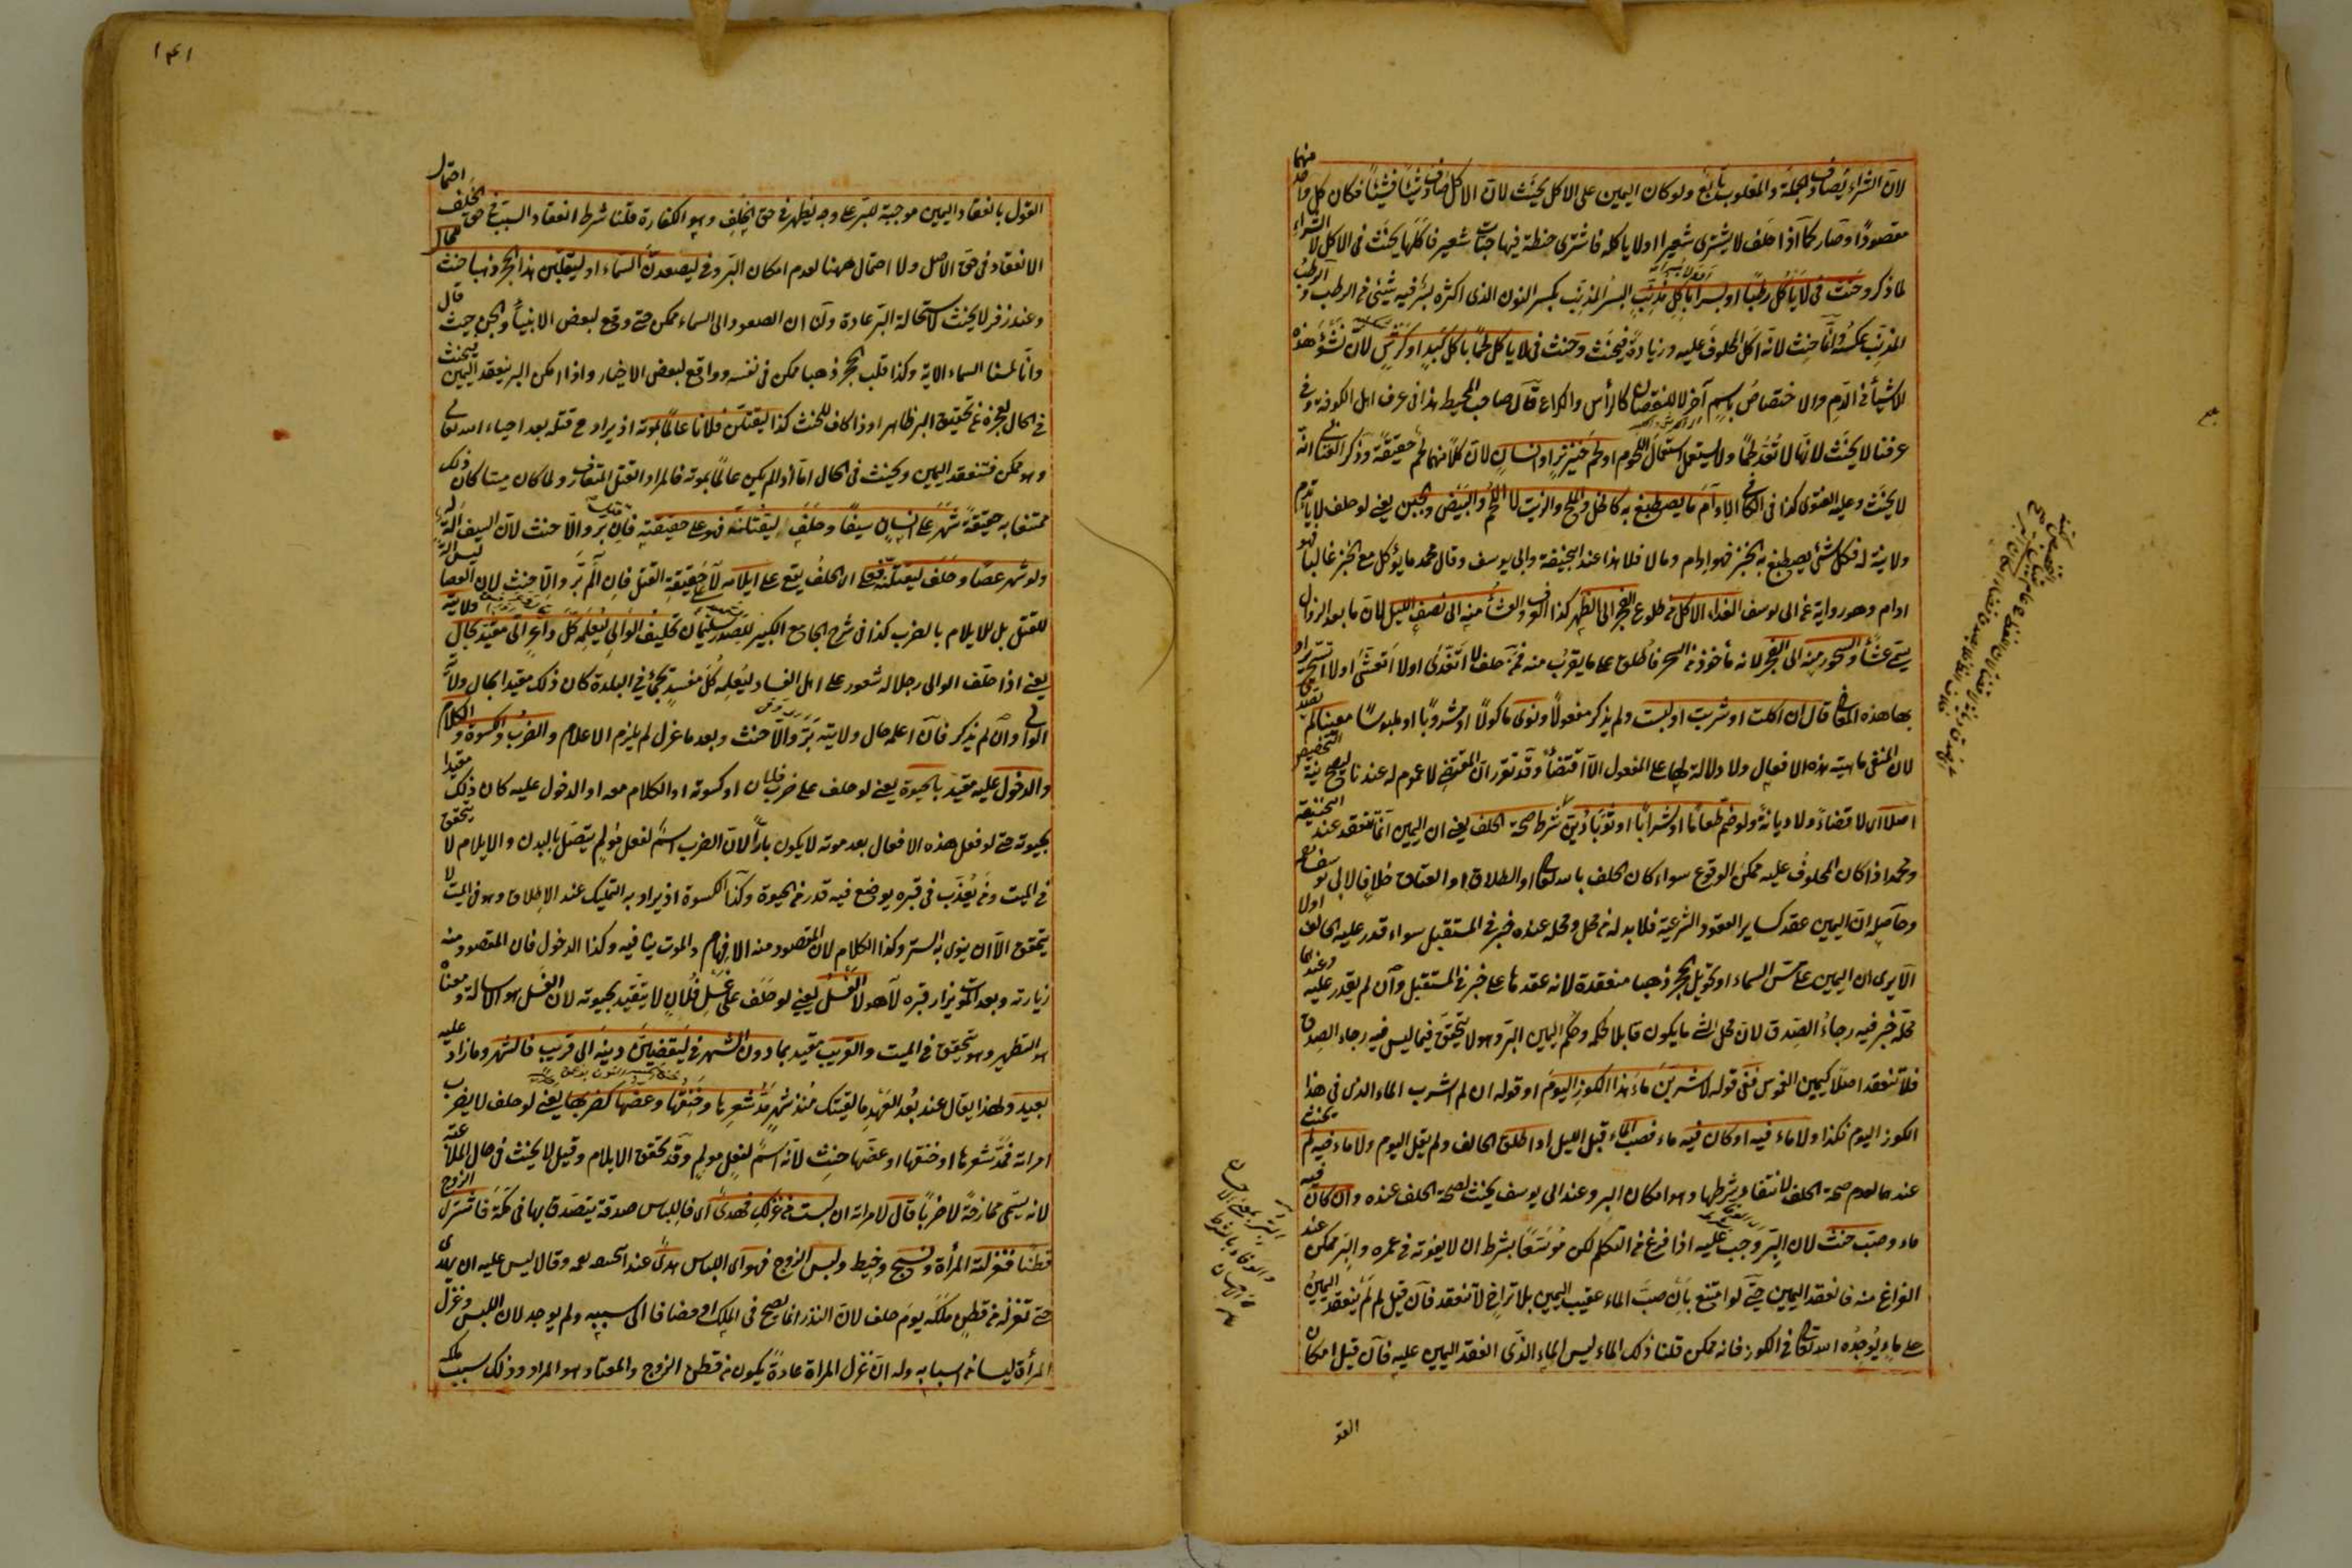 لان الشراء يصادف الجملة والمغلوب تابع ولو كان اليمين على الاكل يحنث لان الاكل يصادف شيئا فشيئا فكان كل واحد منهما
مقصودا وصار كما اذا حلف لا يشترى شعيرا او لا ياكله فاشترى حنطة فيها حبات شعير فاكلها يحنث فى الاكل لا الشراء
لما ذكر وحنث فى لا ياكل رطبا او بسرا باكل مذنب البسر المذنب بكسر النون الذى اكثره بسر فيه شئ من الرطب والرطب
المذنب عكسه وانما حنث لانه اكل المحلوف عليه وزيادة فيحنث وحنث فى لا ياكل لحما باكل كبد او كرش لان نشؤ هذه
الاشياء من الدم والاختصاص باسم آخر لا للنقصان كالرأس والكراع قال صاحب المحيط هذا فى عرف اهل الكوفة وفى
عرفنا لا يحنث لانها لا تعد لحما ولا يستعمل استعمال اللحوم او لحم خنزير او انسان لان كلا منهما لحم حقيقة وذكر العتابى انه
لا يحنث وعليه الفتوى كذا فى الكافى الادام ما يصطبغ به كالخل والملح والزيت لا اللحم والبيض والجبن يعنى لو حلف لا ياتدم
ولا نية له فكل شئ يصطبغ به الخبز فهو ادام وما لا فلا هذا عند ابيحنيفة وابى يوسف وقال محمد ما يؤكل مع الخبز غالبا فهو
ادام وهو رواية عن ابى يوسف الغداء الاكل من طلوع الفجر الى الظهر كذا فى والعشاء منه الى نصف الليل لان ما بعد الزوال
يسمى عشاء والسحور منه الى الفجر لانه مأخوذ من السحر فاطلق على ما يقرب منه فمن حلف لا اتغدى او لا اتعشى او لا اتسحر يراد
بها هذه المعانى قال ان اكلت او شربت او لبست ولم يذكر مفعولا ونوى مأكولا او مشروبا او ملبوسا معينا لم يصدق
لان المنفى ماهية هذه الافعال ولا دلالة لها على المفعول الا اقتضاء وقد تقرر ان المقتضى لا عموم له عندنا فلا يصح نية التخصيص
اصلا اى لا قضاء ولا ديانة ولو ضم طعاما او شرابا او ثوبا دين شرط صحة الحلف يعنى ان اليمين انما تنعقد عند ابيحنيفة
ومحمد اذا كان المحلوف عليه ممكن الوقوع سواء كان الحلف بالله تعالى او الطلاق او العتاق خلافا لابى يوسف
وحاصله ان اليمين عقد كساير العقود الشرعية فلا بد له من محل ومحله عنده خبر فى المستقبل سواء قدر عليه الحالف اولا
الا يرى ان اليمين على مس السماء او تحويل الحجر ذهبا منعقدة لانه عقدها على خبر فى المستقبل وان لم يقدر عليه وعندهما
محله خبر فيه رجاء الصدق لان محل الشئ ما يكون قابلا لحكمه وحكم اليمين البر وهو لا يتحقق فيما ليس فيه رجاء الصدق
فلا تنعقد اصلا كيمين الغموس ففى قوله لاشربن ماء هذا الكوز اليوم او قوله ان لم اشرب الماء الذى فى هذا
الكوز اليوم فكذا ولا ماء فيه او كان فيه ماء فصب الماء قبل الليل او اطلق الحالف ولم يقل اليوم ولا ماء فيه لم يحنث
عندهما لعدم صحة الحلف لانتفاء شرطها وهو امكان البر وعند ابى يوسف يحنث لصحة الحلف عنده وان كان فيه
ماء وصب حنث لان البر وجب عليه اذا فرغ من التكلم لكن موسعا بشرط ان لا يفوته فى عمره والبر ممكن عند
الفراغ منه فانعقد اليمين حتى لو امتنع بان صب الماء عقيب اليمين بلا تراخ لا تنعقد فان قيل لم لم ينعقد اليمين
على ماء يوجده الله تعالى فى الكوز فانه ممكن قلنا ذلك الماء ليس الماء الذى انعقد اليمين عليه فان قيل امكان
القو
١٤١
القول بانعقاد اليمين موجبة للبر على وجه يظهر فى حق الخلف وهو الكفارة قلنا شرط انعقاد السبب فى حق الخلف احتمال
الانعقاد فى حق الاصل ولا احتمال ههنا لعدم امكان البر وفى ليصعدن السماء او ليقلبن هذا الحجر ذهبا حنث للحال
وعند زفر لا يحنث لاستحالة البر عادة ولنا ان الصعود الى السماء ممكن حتى وقع لبعض الانبياء والجن حيث قال
وانا لمسنا السماء الاية وكذا قلب الحجر ذهبا ممكن فى نفسه وواقع لبعض الاخيار واذا امكن البر ينعقد اليمين يحنث
فى الحال لعجزه عن تحقيق البر ظاهرا وذا كاف للحنث كذا ليقتلن فلانا عالما بموته اذ يراد ح قتله بعد احياء الله تعالى
وهو ممكن فتنعقد اليمين ويحنث فى الحال اما اذا لم يكن عالما بموته فالمراد القتل المتعارف ولما كان ميتا كان ذلك
ممتنعا به حقيقة شهر على انسان سيفا وحلف ليقتلنه فهو على حقيقته فان بر والا حنث لان السيف آلة له
ولو شهر عصا وحلف ليقتلنه فعلى ان الحلف يقع على ايلامه لا حقيقة القتل فان آلم بر والا حنث لان العصا ليس آلة
للقتل بل للايلام بالضرب كذا فى شرح الجامع الكبير للصدر سليمان تحليف الوالى ليعلمه كل داعر اتى مقيد بحال ولايته
يعنى اذا حلف الوالى رجلا له شعور على اهل الفساد ليعلمه كل مفسد يجئ فى البلدة كان ذلك مقيدا بحال ولاية
الوالى وان لم يذكر فان اعلمه حال ولايته بر والا حنث وبعد ما عزل لم يلزم الاعلام والضرب والكسوة والكلام
والدخول عليه مقيد بالحيوة يعنى لو حلف على ضرب فلان او كسوته او الكلام معه او الدخول عليه كان ذلك مقيدا
بحيوته حتى لو فعل هذه الافعال بعد موته لا يكون بارا لان الضرب اسم لفعل مولم يتصل بالبدن والايلام لا يتحقق
فى الميت ومن يعذب فى قبره يوضع فيه قدر من الحيوة وكذا الكسوة اذ يراد به التمليك عند الاطلاق وهو فى الميت لا
يتحقق الا ان ينوى به الستر وكذا الكلام لان المقصود منه الافهام والموت ينافيه وكذا الدخول فان المقصود منه
زيارته وبعد الموت يزار قبره لا هو لا الغسل يعنى لو حلف على غسل فلان لا يتقيد بحيوته لان الغسل هو الاسالة ومعناه
هو التطهير وهو يتحقق فى الميت والقريب مقيد بما دون الشهر فى ليقضين دينه الى قريب فالشهر وما زاد عليه
بعيد ولهذا يقال عند بعد العهد ما لقيتك منذ شهر مد شعرها وخنقها وعضها كضربها يعنى لو حلف لا يضرب
امراته فمد شعرها او خنقها او عضها حنث لانه اسم لفعل مولم وقد تحقق الايلام وقيل لا يحنث فى حال الملاعبة
لانه يسمى ممازحة لا ضربا قال لامراته ان لبست من غزلك فهدى اى فاللباس صدقة يتصدق بها فى مكة فاشترى الزوج
قطنا فغزلته المرأة ونسج وخيط ولبس الزوج فهو اى اللباس هدى عند ابيحنيفة وقالا ليس عليه ان يهدى
حتى تغزله من قطن ملكه يوم حلف لان النذر انما يصح فى الملك او مضافا الى سببه ولم يوجد لان اللبس وغزل
المرأة ليسا من اسبابه وله ان غزل المراة عادة يكون من قطن الزوج والمعتاد هو المراد وذلك سبب ملكه